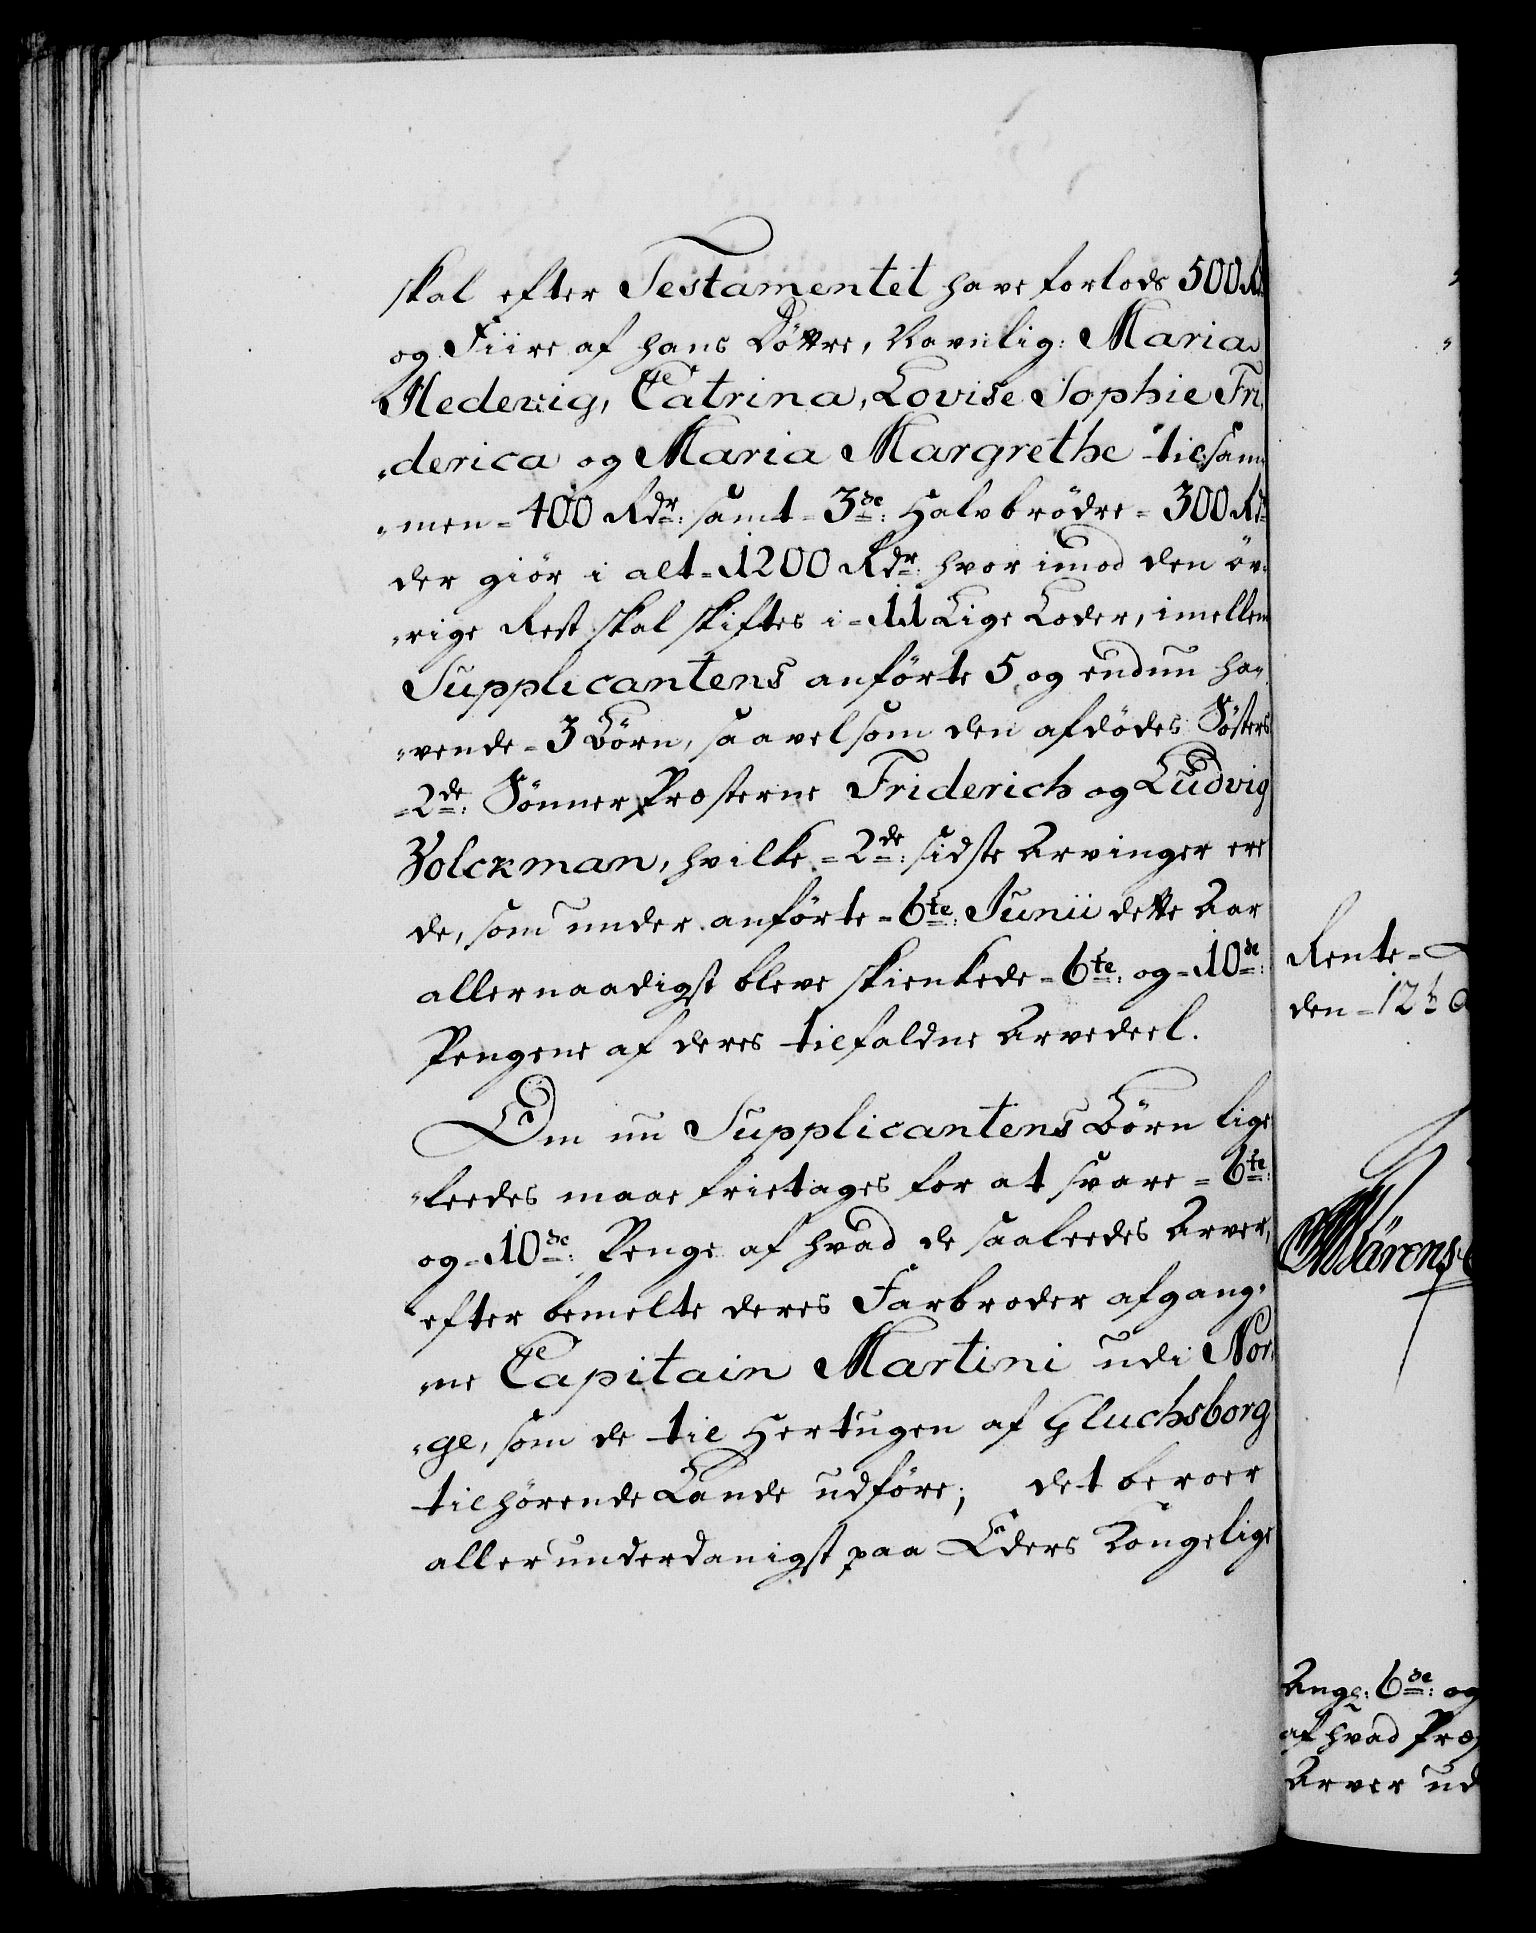 skal efter Testamentet have forlods 500 Rd
og Fiire af hans Döttre, Navnlig: Maria
Hedevig, Catrina, Lovise Sophie Fri„
„derica og Maria Margrethe tilsam„
„men = 400 Rdr: samt = 3de: Halvbrödre = 300 Rd
der giör i alt = 1200 Rdr: hvor imod den öv„
„rige Rest skal skiftes i = 11 Lige Loder, imellem
Supplicantens anförte 5 og endnu ha„
„vende = 3 Börn, saavelsom den afdödes Söster
= 2de: Sönner Præsterne Friderich og Ludvig
Volckman, hvilke = 2de: sidste Arvinger ere
de, som under anförte = 6te: Junii dette Aar
allernaadigst bleve skienkede = 6te: og = 10de:
Pengene af deres tilfaldne Arvedeel.
Om nu Supplicantens Börn lige
„leedes maae frietages for at svare = 6te:
og = 10de: Penge af hvad de saaleedes Arver,
efter bemelte deres Farbroder afgang„
„ne Capitain Martini udi Nor„
„ge, som de til Hertugen af Gluchsborg
tilhörende Lande udföre; det beroer
allerunderdanigst paa Eders Kongelige
Rente =
den = 12t
Ang: 6de: og
af hvad Præ
Arver ud